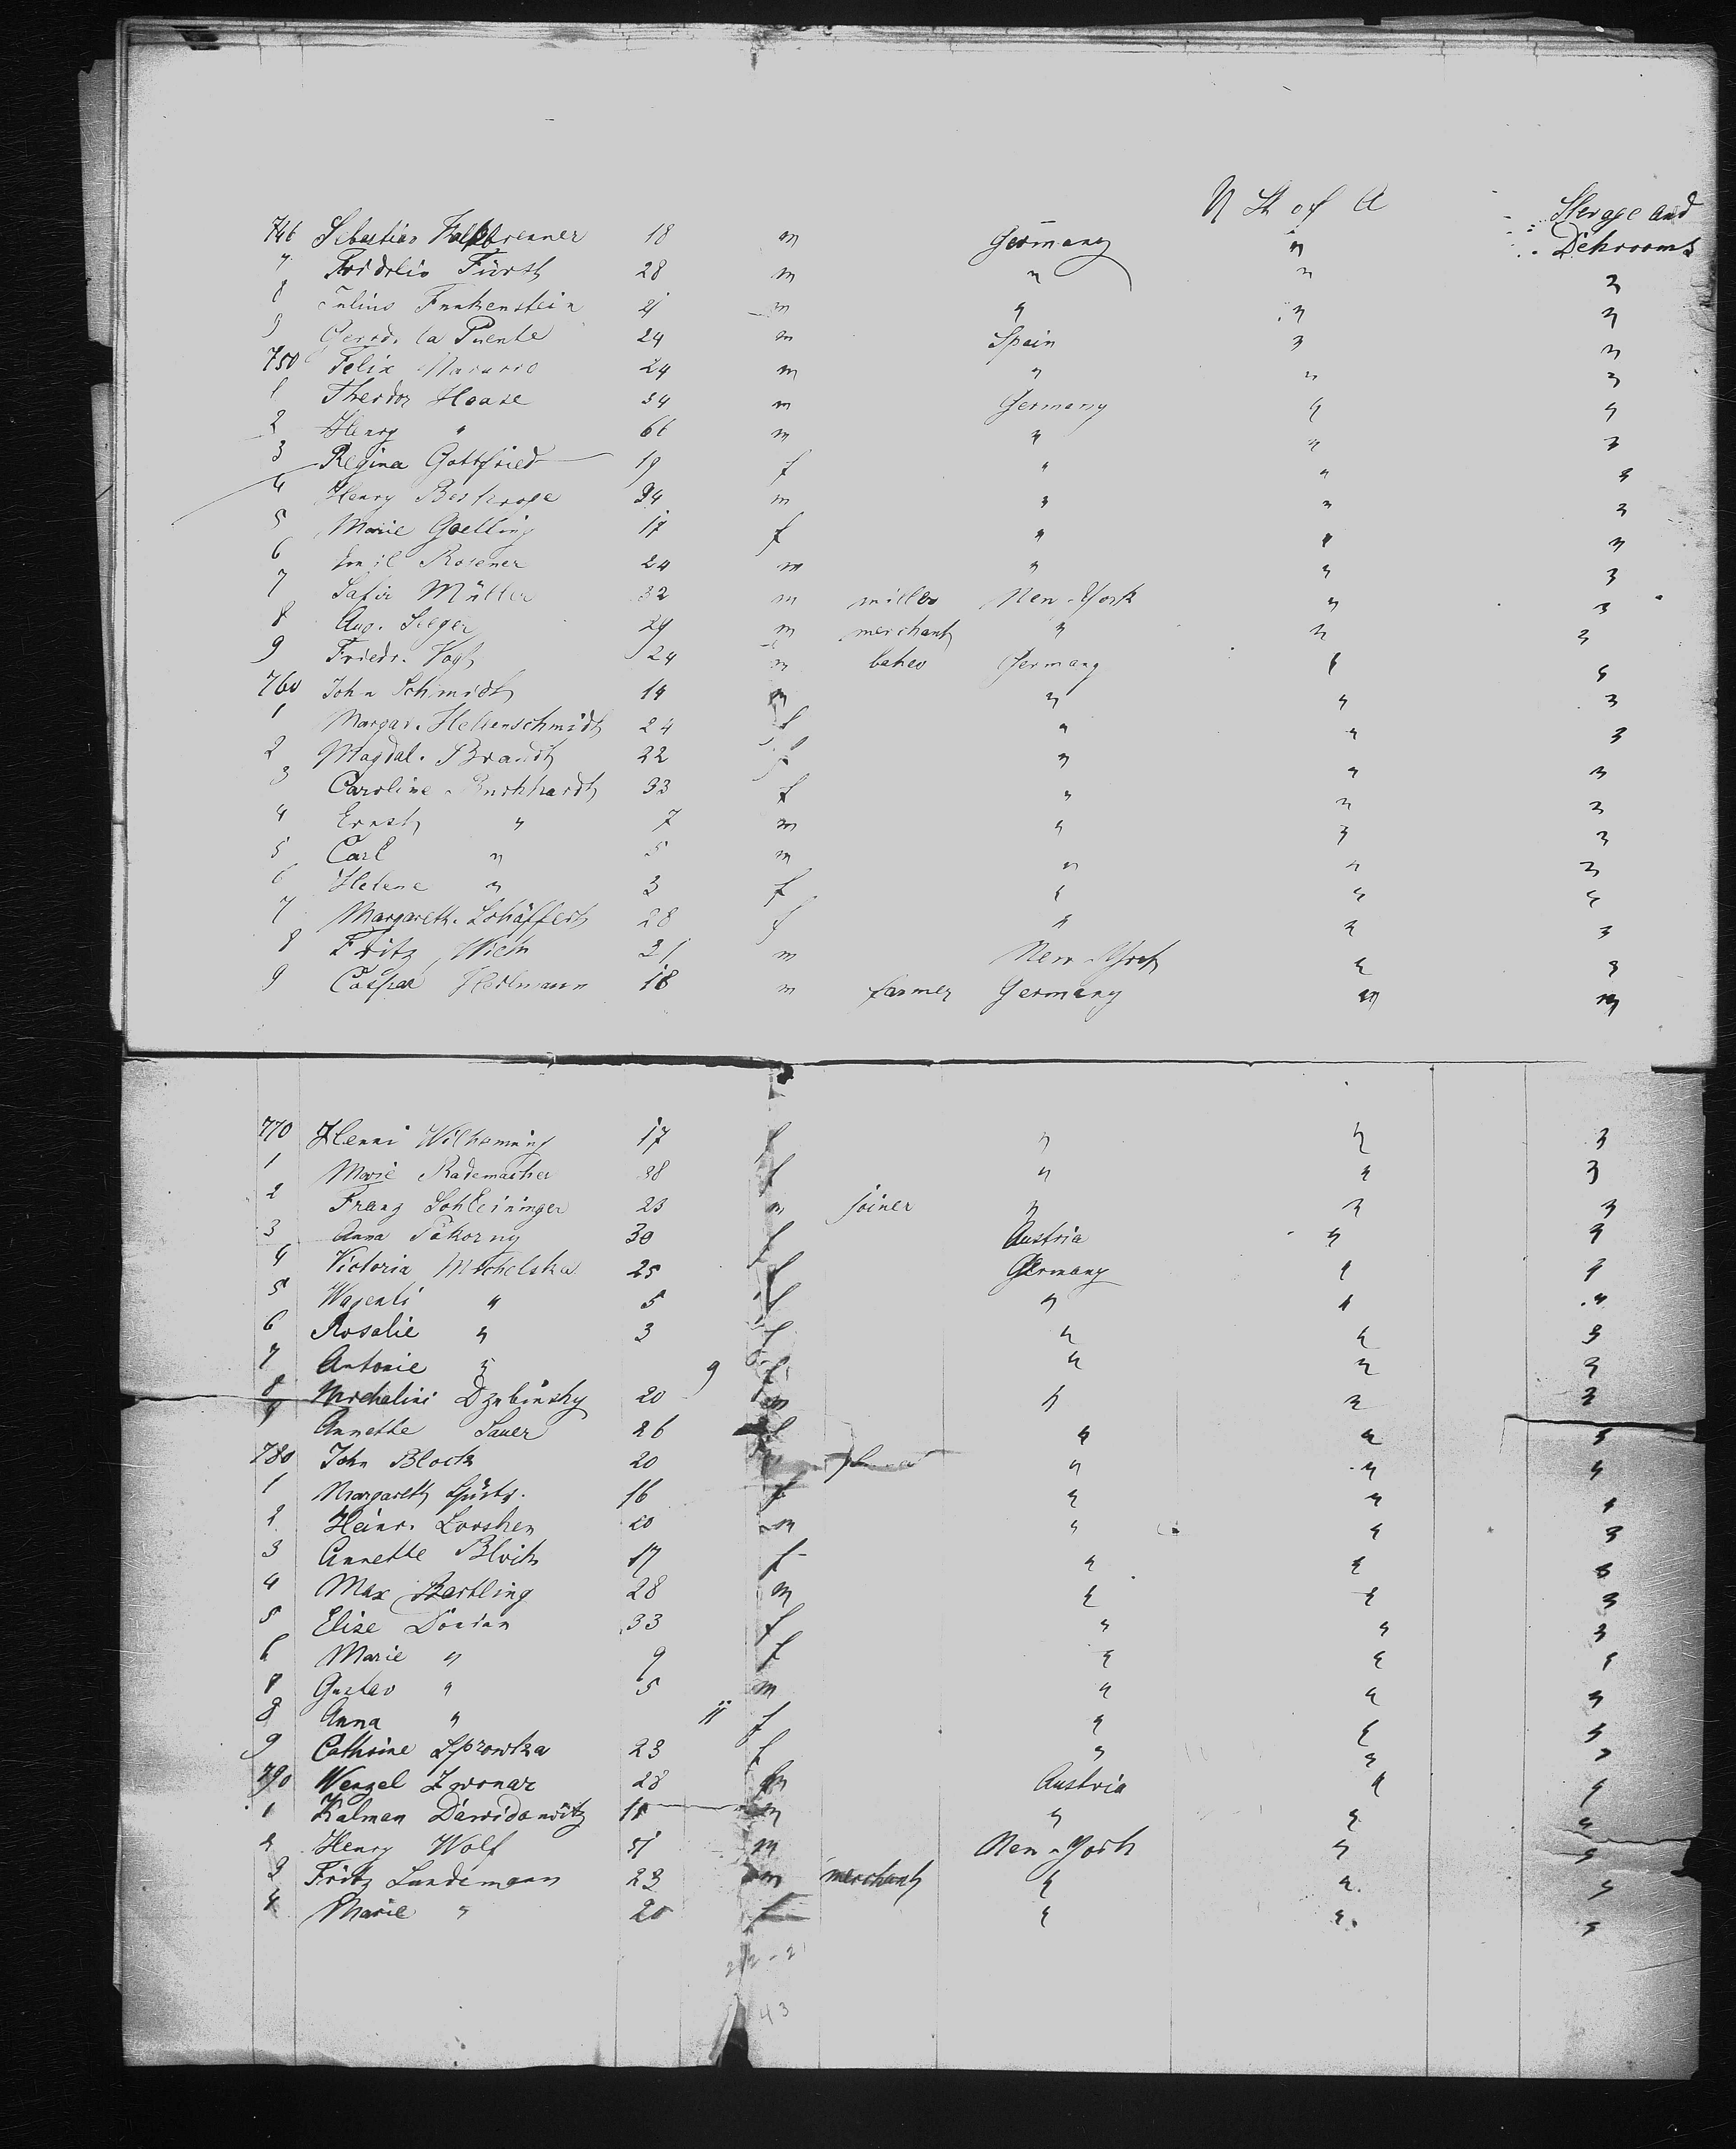 U St of A Sterage and
746 Sebastian Falkbrenner 18 m Germany " Dekrooms
7 Fridolin Fürst 28 m " " "
8 Julius Funkenstein 21 m " " "
9 Gerrd. la Puente 24 m Spain " "
750 Felix Navarro 24 m " " "
1 Theodor Haase 34 m Germany " "
2 Henry " 66 m " " "
3 Regina Gottfried 19 f " " "
4 Henry 34 m " " "
5 Marie Goelling 17 f " " "
6 Emil Rosener 24 m " " "
7 Müller 32 m miller New-York " "
8 Aug. Seeger 29 m merchant " " "
9 Friedr. Vogt 24 m baker Germany " "
760 John Schmidt 19 m " " "
1 Margar. Hellenschmidt 24 f " " "
2 Magdal. Brandt 22 f " " "
3 Caroline Burkhardt 33 f " " "
4 Ernst " 7 m " " "
5 Carl " 5 m " " "
6 Helene " 3 f " " "
7 Margareth. Schäffert 28 f " " "
8 Fritz Wich 31 m New-York " "
9 Caspar Heilmann 18 m farmer Germany " "
770 Henri 17 f " " "
1 Marie Rademacher 38 f " " "
2 Franz Schleininger 23 m joiner " " "
3 Anna Pokorny 30 f Austria " "
4 Victoria Michelska 25 f Germany " "
5 " 5 f " " "
6 Rosalie " 3 f " " "
7 Antonie " 9 f " " "
8 Michalini Dzubinsky 20 m " " "
9 Annette Sauer 26 f " " "
780 John Block 20 " " "
1 Margareth 16 f " " "
2 Heinr. 20 m " " "
3 Annette 17 f " " "
4 Max Bartling 28 m " " "
5 Elise 33 f " " "
6 Marie " 9 f " " "
7 Gustav " 5 m " " "
8 Anna " 11 f " " "
9 Cathrine 23 f " " "
790 Wenzel Zwonar 28 m Austria " "
1 Kalman Dawidowitz 18 m " " "
2 Henry Wolf 51 m New-York " "
3 Fritz Lundemann 23 m merchant " " "
4 Marie " 20 f " " "
43